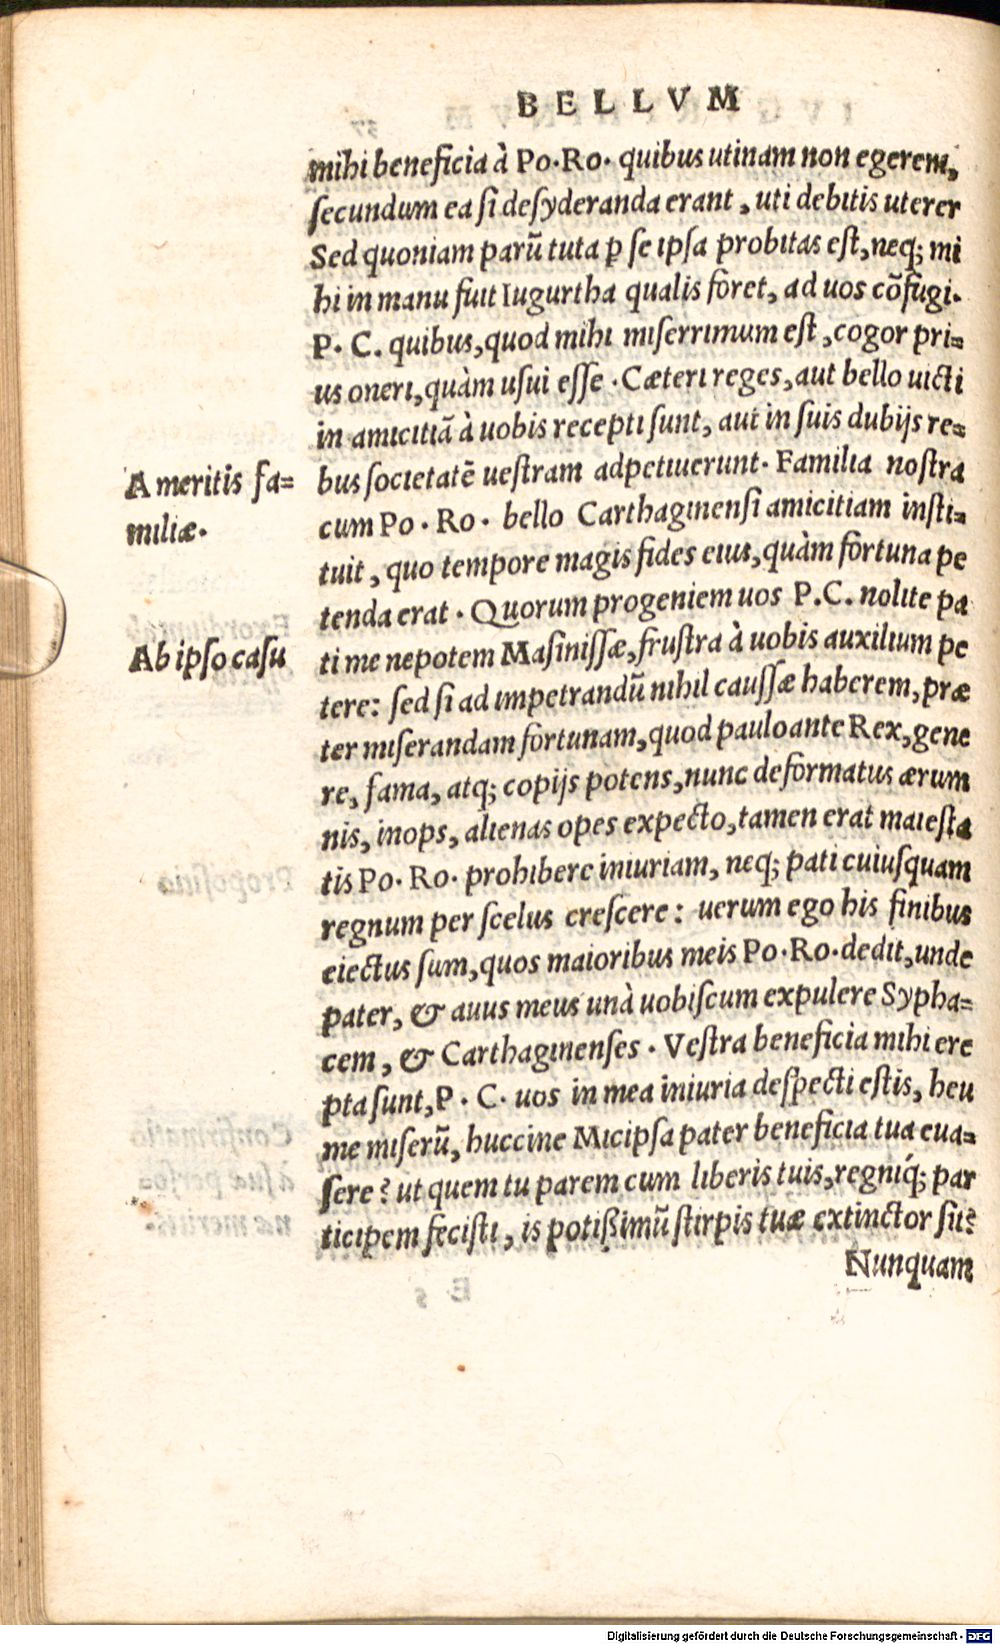 BELLVM
mihi beneficia à Po·Ro· quibus utinam non egerem,
secundum ea si desyderanda erant, uti debitis uterer
Sed quoniam parũ tuta p̱ se ipsa probitas est, neq; mi
hi in manu fuit Iugurtha qualis foret, ad uos cõfugi.
P. C. quibus, quod mihi miserrimum est, cogor pri=
us oneri, quàm usui esse. Cæteri reges, aut bello uicti
in amicitiã à uobis recepti sunt, aut in suis dubijs re=
bus societatẽ uestram adpetiuerunt. Familia nostra
A meritis fa=
miliæ.
cum Po. Ro. bello Carthaginensi amicitiam insti=
tuit, quo tempore magis fides eius, quàm fortuna pe
tenda erat. Quorum progeniem uos P.C. nolite pa
Ab ipso casu
ti me nepotem Masinissæ, frustra à uobis auxilium pe
tere: sed si ad impetrandũ nihil caussæ haberem, præ
ter miserandam fortunam, quod paulo ante Rex, gene
re, fama, atq; copijs potens, nunc deformatus ærum
nis, inops, alienas opes expecto, tamen erat maiesta
tis Po. Ro. prohibere iniuriam, neq; pati cuiusquam
regnum per scelus crescere: uerum ego his finibus
eiectus sum, quos maioribus meis Po·Ro·dedit, unde
pater, & auus meus unà uobiscum expulere Sypha=
cem, & Carthaginenses. Vestra beneficia mihi ere
pta sunt, P. C. uos in mea iniuria despecti estis, heu
me miserũ, huccine Micipsa pater beneficia tua eua=
sere? ut quem tu parem cum liberis tuis, regniq́; par
ticipem fecisti, is potißimũ stirpis tuæ extinctor sit?
Nunquam
Digitalisierung gefördert durch die Deutsche Forschungsgemeinschaft - DFG